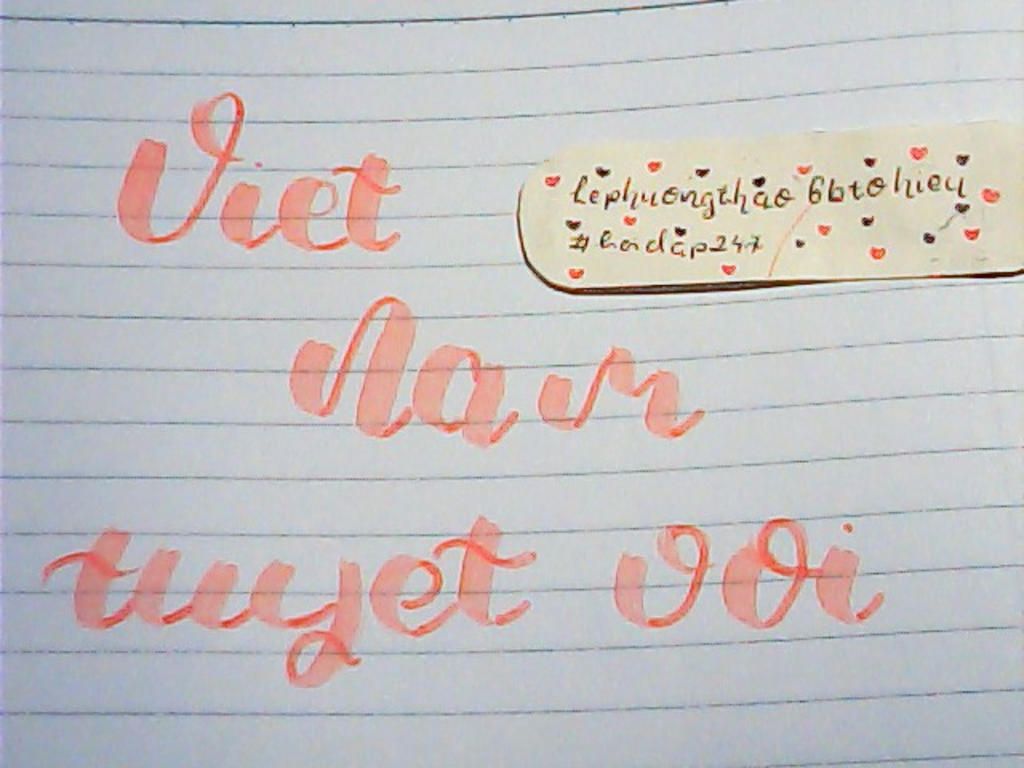 Viet
lephuongthao 6btohieu
#hoidap247
Nam
tuyet voi